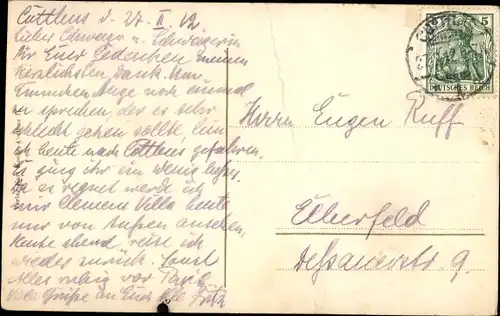 Cottbus d. 27. II. 12
Lieber Schwager u. Schwägerin
Für Euer Gedenken meinen
herzlichsten Dank. Um
Emmchen noch einmal
zu sprechen, der es sehr
schlecht gehen sollte, bin
ich heute nach Cottbus gefahren.
Es ging ihr ein wenig besser.
Da es regnet werde ich
mir Clemens Villa heute
nur von Außen ansehen.
Heute abend reise ich
wieder zurück. Sonst
Alles ruhig vor
Viele Grüße an Euch Alle Fritz
5
DEUTSCHES REICH
Herrn Eugen Ruff
Elberfeld
Dessauerstr 9.